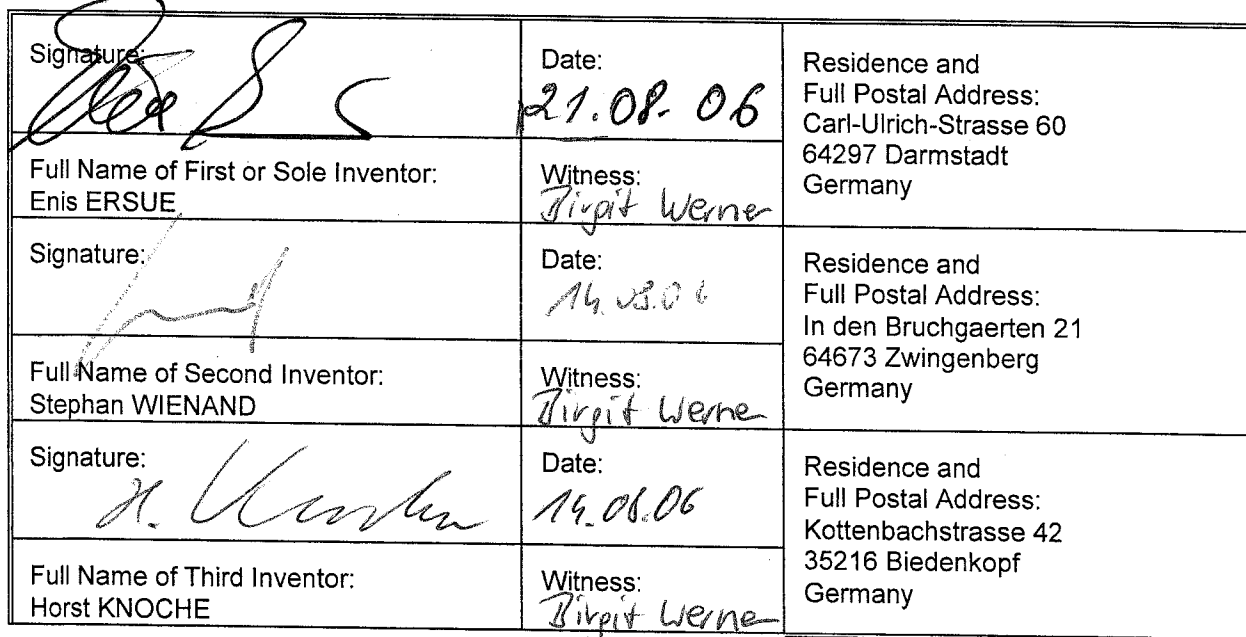 Signature:
Date:
21.08.06
Residence and
Full Postal Address:
Carl-Ulrich-Strasse 60
64297 Darmstadt
Germany
Full Name of First or Sole Inventor:
Enis ERSUE
Witness:
Birgit Werner
Signature:
Date:
14.08.06
Residence and
Full Postal Address:
In den Bruchgaerten 21
64673 Zwingenberg
Germany
Full Name of Second Inventor:
Stephan WIENAND
Witness:
Birgit Werner
Signature:
H. Knoche
Date:
14.08.06
Residence and
Full Postal Address:
Kottenbachstrasse 42
35216 Biedenkopf
Germany
Full Name of Third Inventor:
Horst KNOCHE
Witness:
Birgit Werner